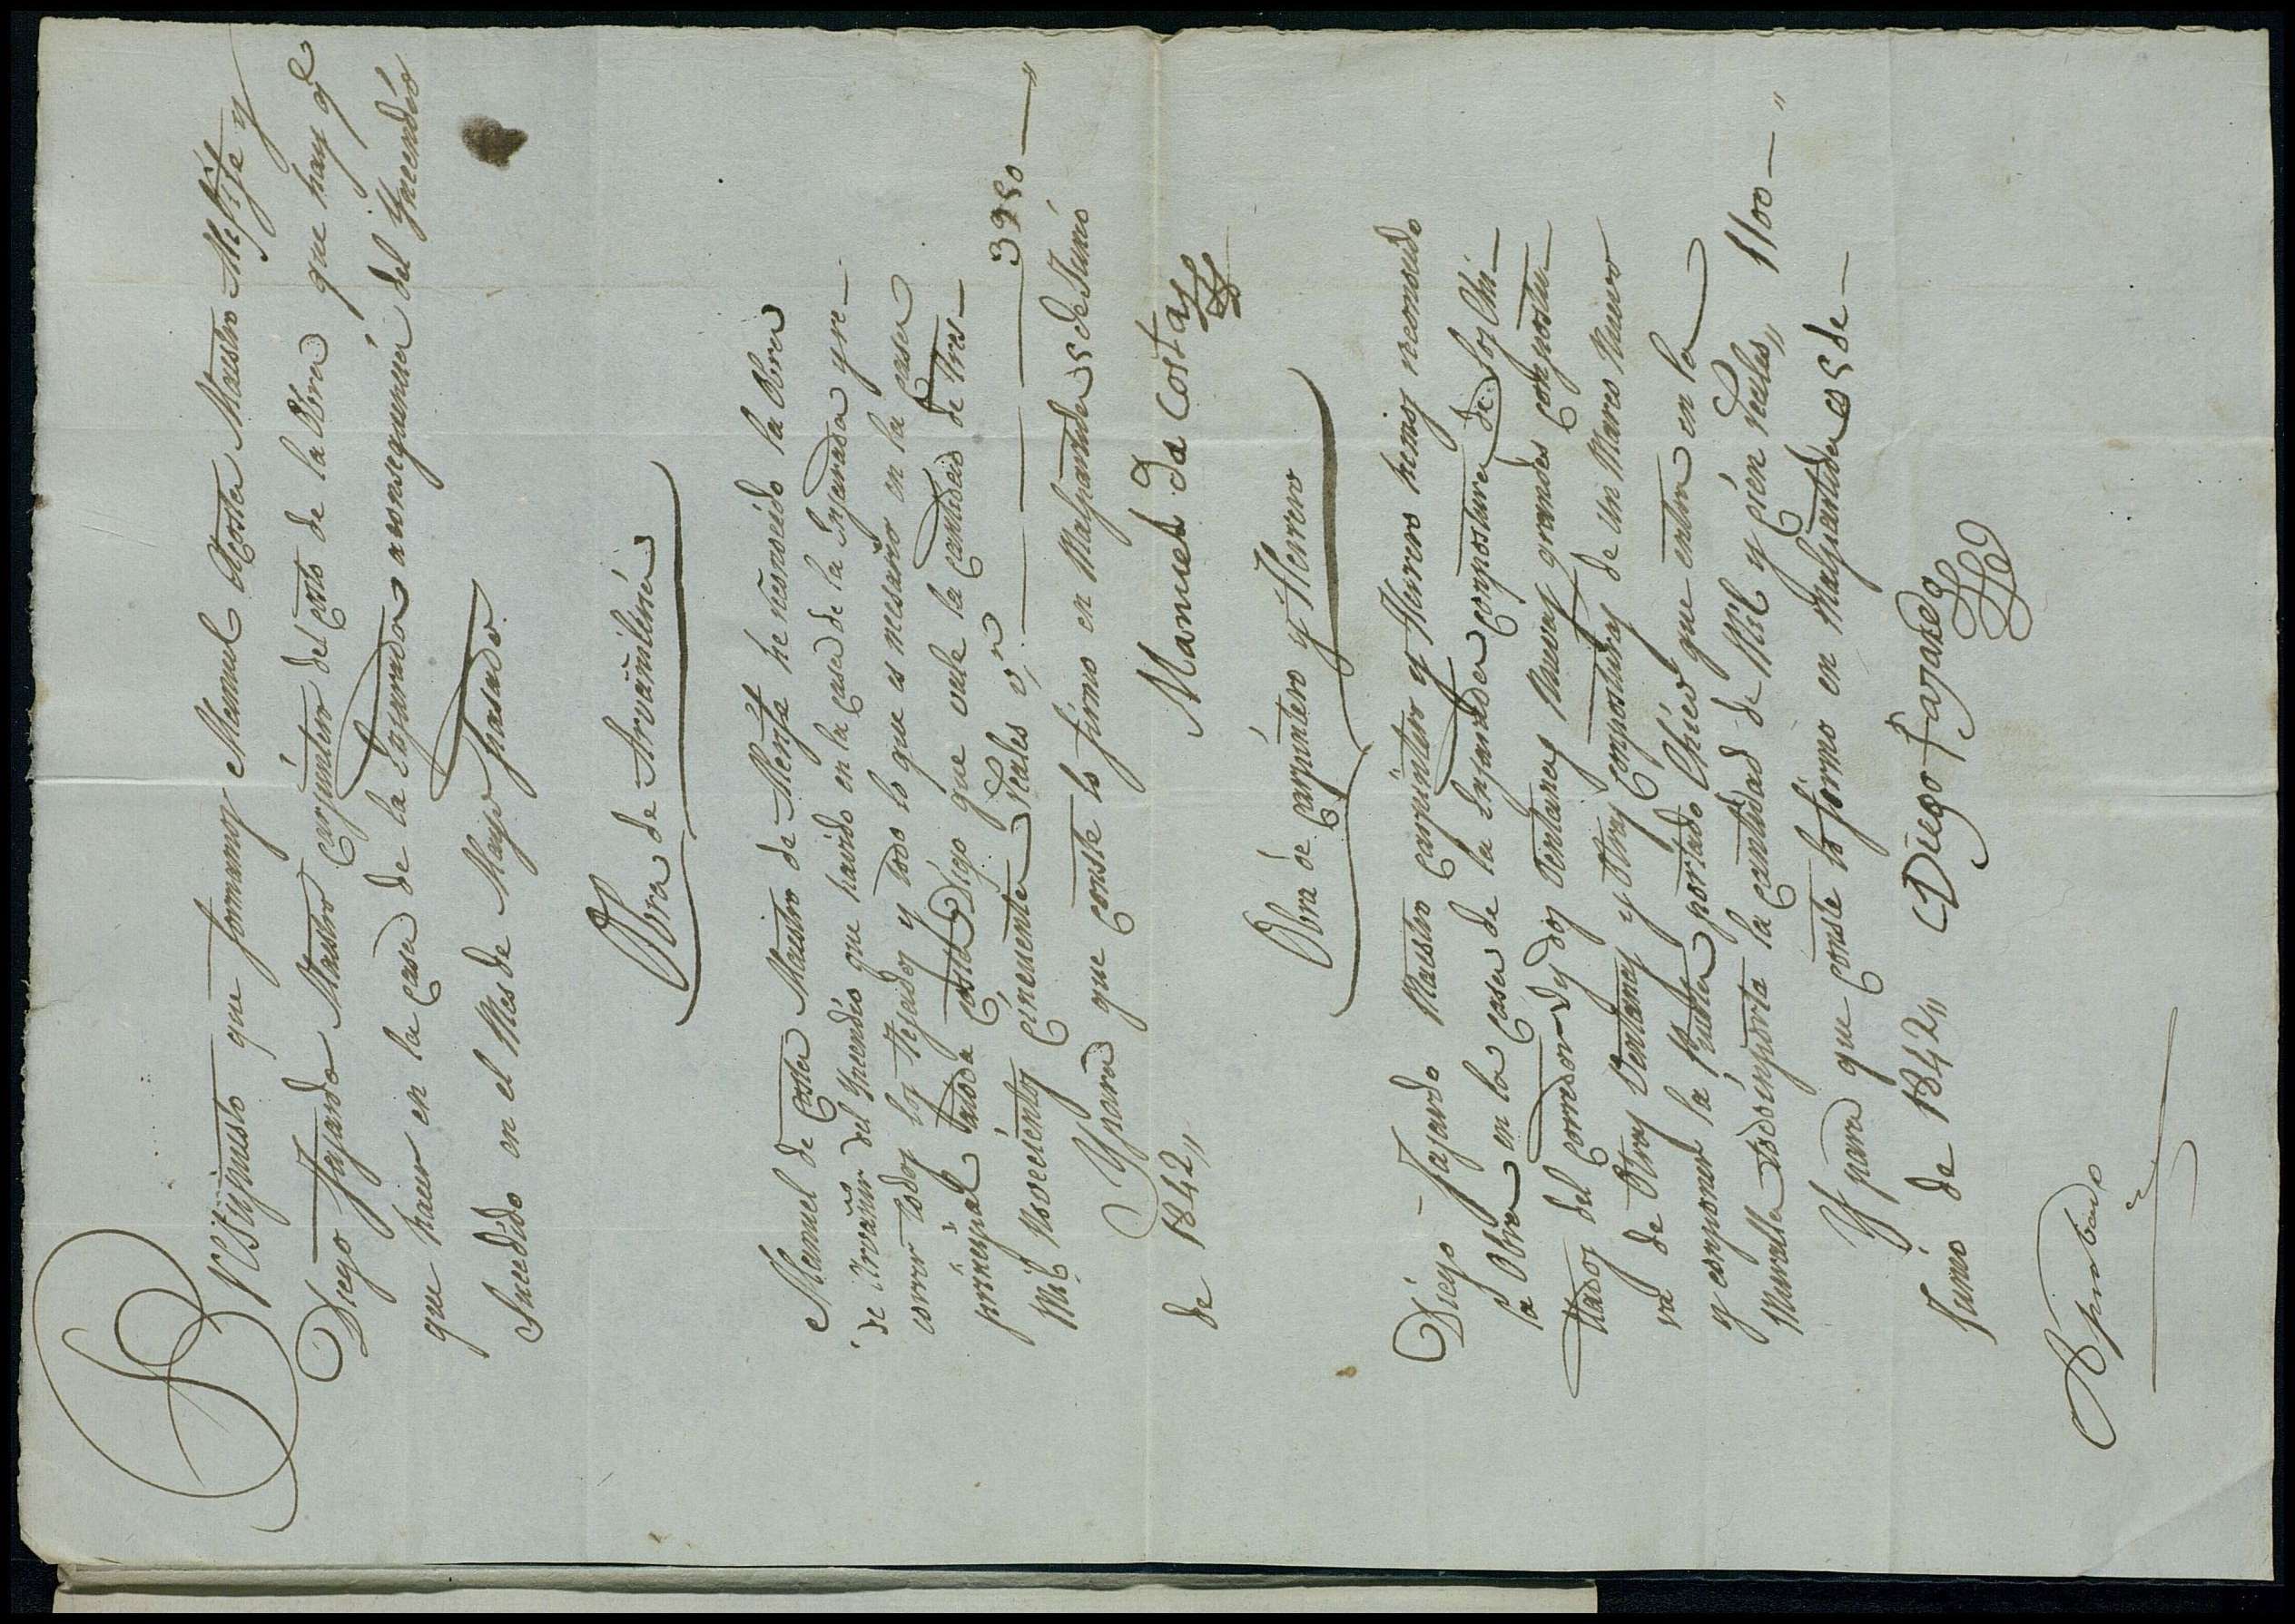 Presupuesto que formamos Manuel Acosta Maestro Alvañil y
Diego Fajardo Maestro carpintero del costo de la Obra que hay qe
que hacer en la casa de la Enfanada a consequencia del Yncendio
Sucedido en el Mes de Mayo pasado.
Obra de Arvañileria
Manuel de Costa Maestro de he reconocido la Obra
de Arvañil del Yncendio que havido en la casa de la y re—
correr todos los tejados y todo lo que es nesesario en la casa
prinsipal toda costa Digo que vale la cantidad de tres—
Mil Nobecientos cincuenta Reales vn — 3950 — "
Y para que conste lo firmo en Malpartida 5 de Junio
de 1842,,
Manuel da Costa
Obra de Carpintero y Herrero
Diego Fajardo Maestro carpintero y Herrero hemos reconsido
la Obra en la casa de la compostura de los Chi—
del corredor y dos Ventanas Nuevas grandes compostu—
ra de Otras Ventanas y Otras composturas de un Marco Nuevo
y componer la Puerta portado Chico que entra en la
Muralla todo inporta la cantidad de Mil y cien Reales,, 1100 — "
Y para que conste lo firmo en Malpartida 5 de—
Junio de 1842,, Diego Fajardo
Aprobado